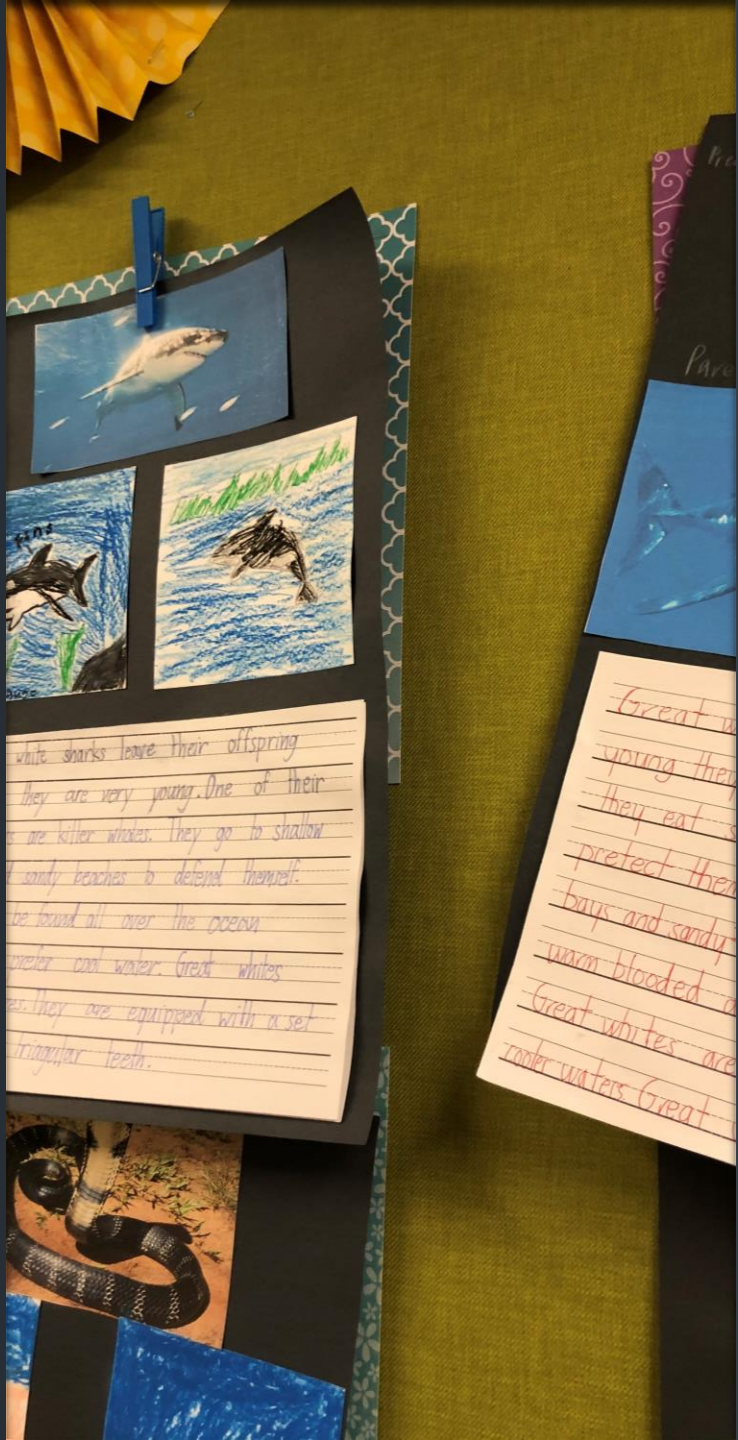 fins
white sharks leave their offspring
they are very young. One of their
s are killer whales. They go to shallow
sandy beaches to defend themself.
be found all over the ocean
prefer cool water. Great whites
es. They are equipped with a set
triagular teeth.
Great w
young they
they eat s
pretect them
bays and sandy
warm blooded a
Great whites are
cooler waters Great